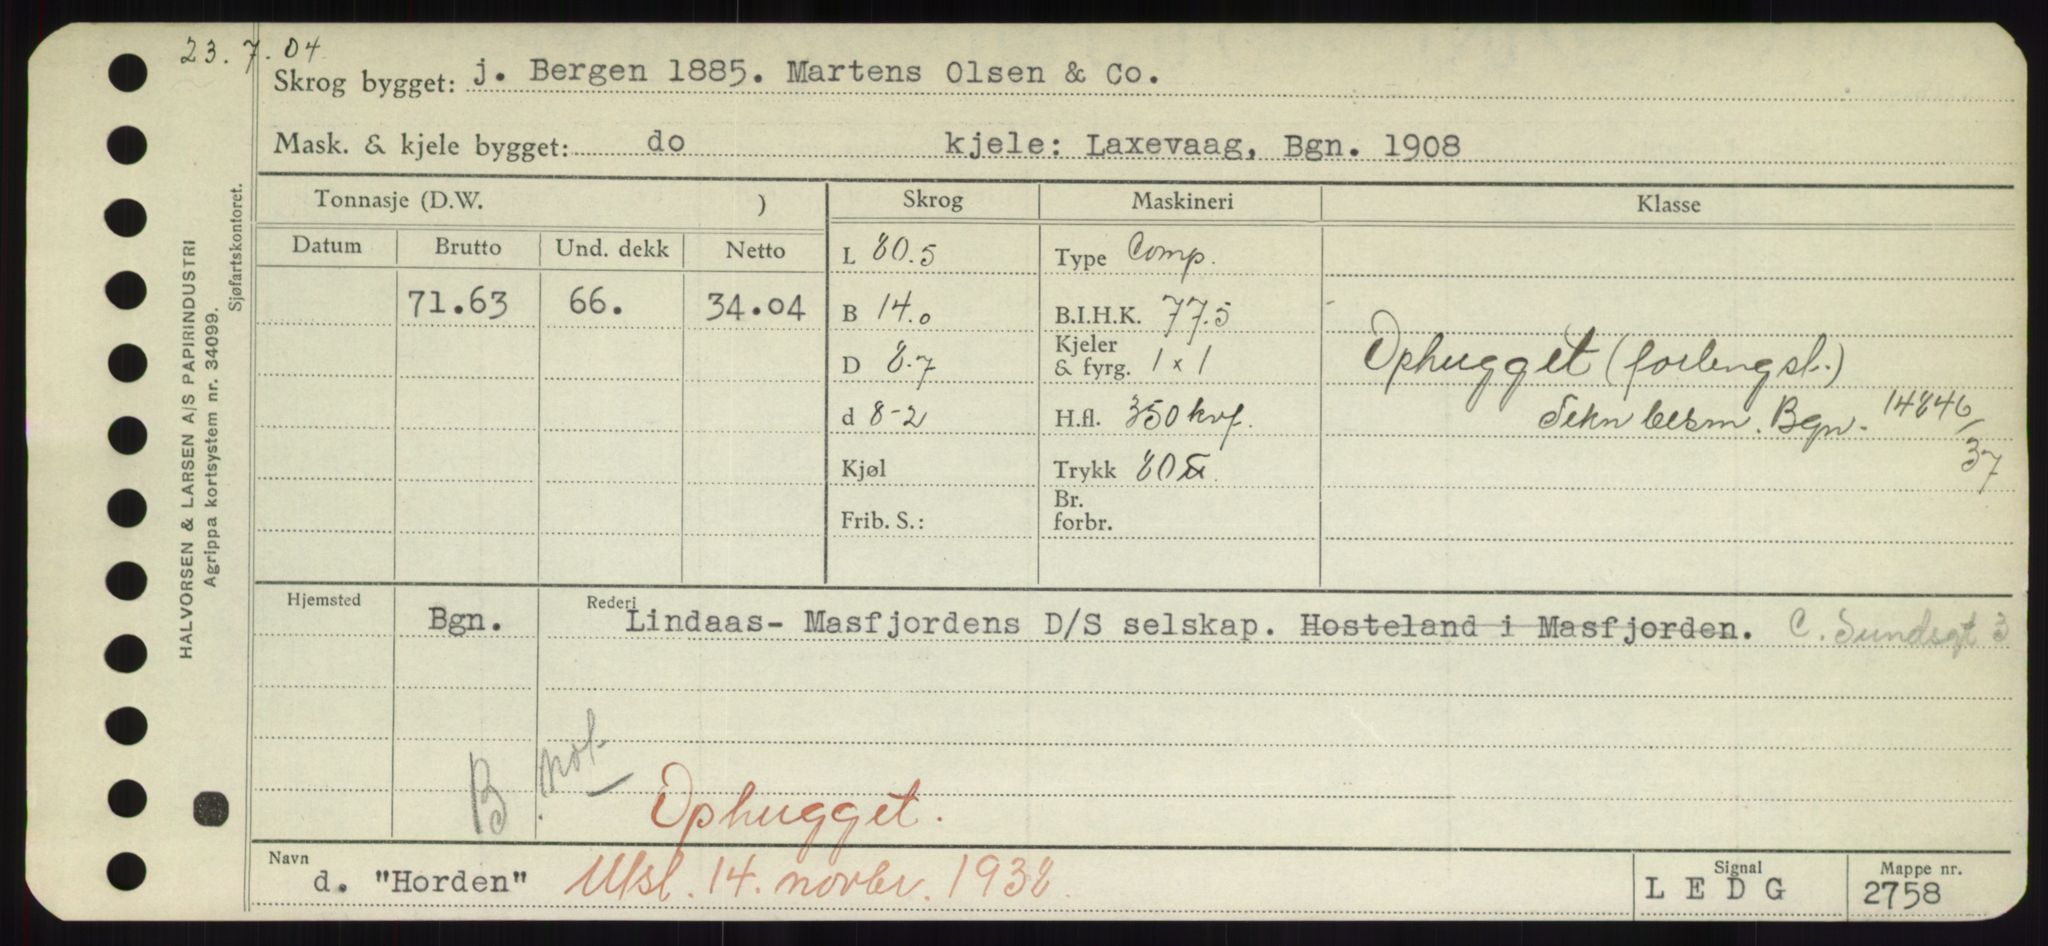 23.7.04
Skrog bygget: j. Bergen 1885. Martens Olsen & Co.
Mask. & kjele bygget: do kjele: Laxevaag, Bgn. 1908
HALVORSEN & LARSEN A/S PAPIRINDUSTRI
Agrippa kortsystem nr. 34099.
Sjøfartskontoret.
Tonnasje (D.W. ) Skrog Maskineri Klasse
Datum Brutto Und. dekk Netto
L 80.5 Type Comp.
71.63 66. 34.04 B 14.0 B.I.H.K. 77.5
D 8.7 Kjeler & fyrg. 1 x 1 Ophugget (forlengst.)
d 8-2 H.fl. 350 kvf. Bgn. 14846/37
Kjøl Trykk 80
Frib. S.: Br. forbr.
Hjemsted Bgn. Rederi Lindaas- Masfjordens D/S selskap. Hosteland i Masfjorden. C. Sundsgt 3
B. not.
Ophugget.
Navn d. "Horden" Utsl. 14. novbr. 1938. Signal L E D G Mappe nr. 2758